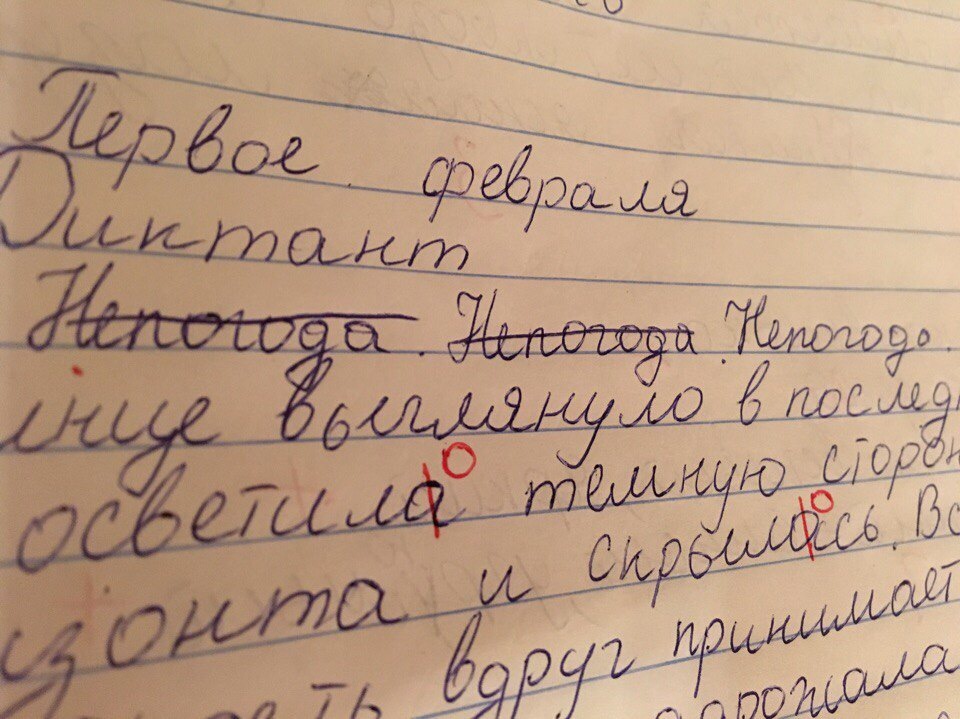 Первое февраля
Диктант
Непогода. Непогода. Непогода.
лнце выглянуло в последн
осветила о темную сторон
изонта и скрылась о. Вс
вдруг принимает
дрожала